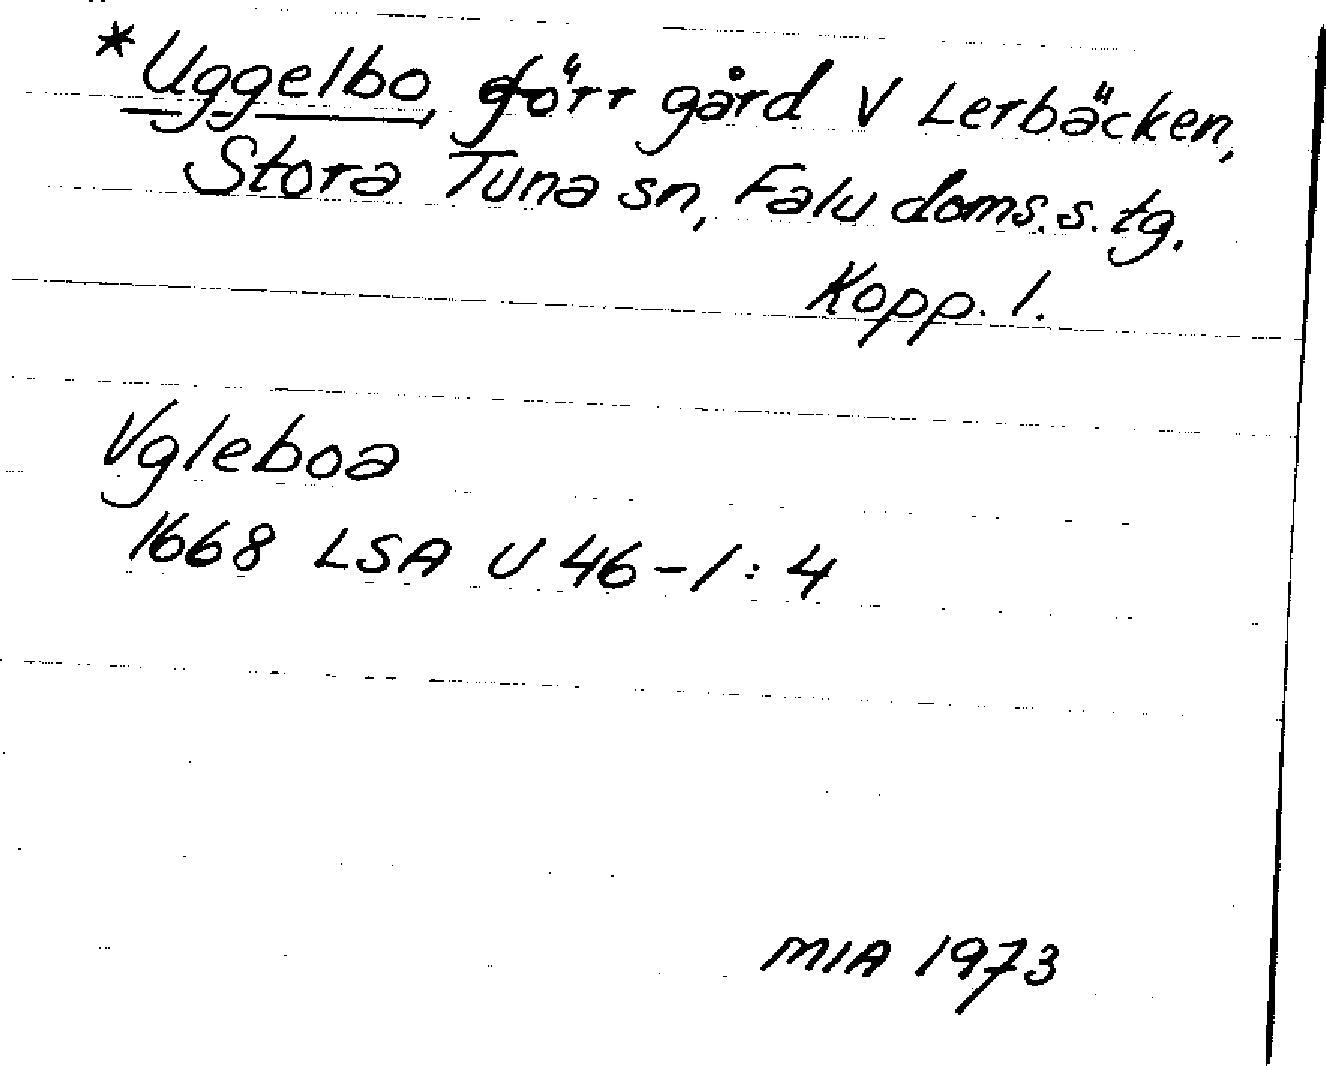 *Uggelbo, förr gård V Lerbäcken,
Stora Tuna sn, Falu doms.s. tg.
Kopp. l.
Vgleboa
1668 LSA U 46-1:4
MIA 1973